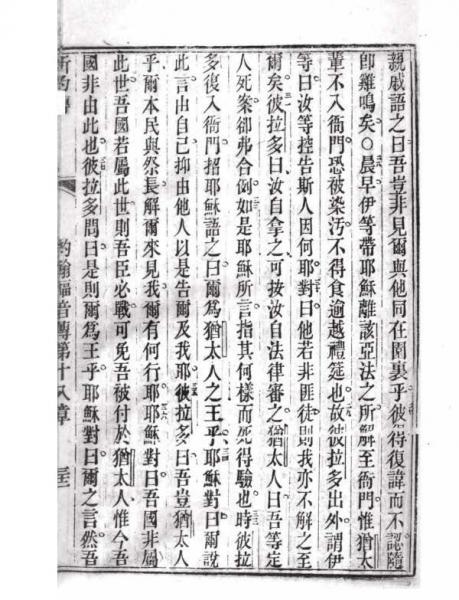 親戚語之曰吾豈非見爾與他同在園裏乎彼得復諱而不認隨
卽雞鳴矣○晨早伊等帶耶穌離該亞法之所解至衙門惟猶太
輩不入衙門恐被染汚不得食逾越禮筵也故彼拉多出外謂伊
等曰汝等控告斯人因何耶對曰他若非匪徒則我亦不解之至
爾矣彼拉多曰汝自拿之可按汝自法律審之猶太人曰吾等定
人死案卻弗合倒如是耶穌所言指其何樣而死得驗也時彼拉
多復入衙門招耶穌語之曰爾爲猶太人之王乎耶穌對曰爾說
此言由自己抑由他人以是告爾及我耶彼拉多曰吾豈猶太人
乎爾本民與祭長解爾來見我爾有何行耶耶穌對曰吾國非屬
此世吾國若屬此世則吾臣必戰可免吾被付於猶太人惟今吾
國非由此也彼拉多問曰是則爾爲王乎耶穌對曰爾之言然吾
約翰福音傳第十八章 三三